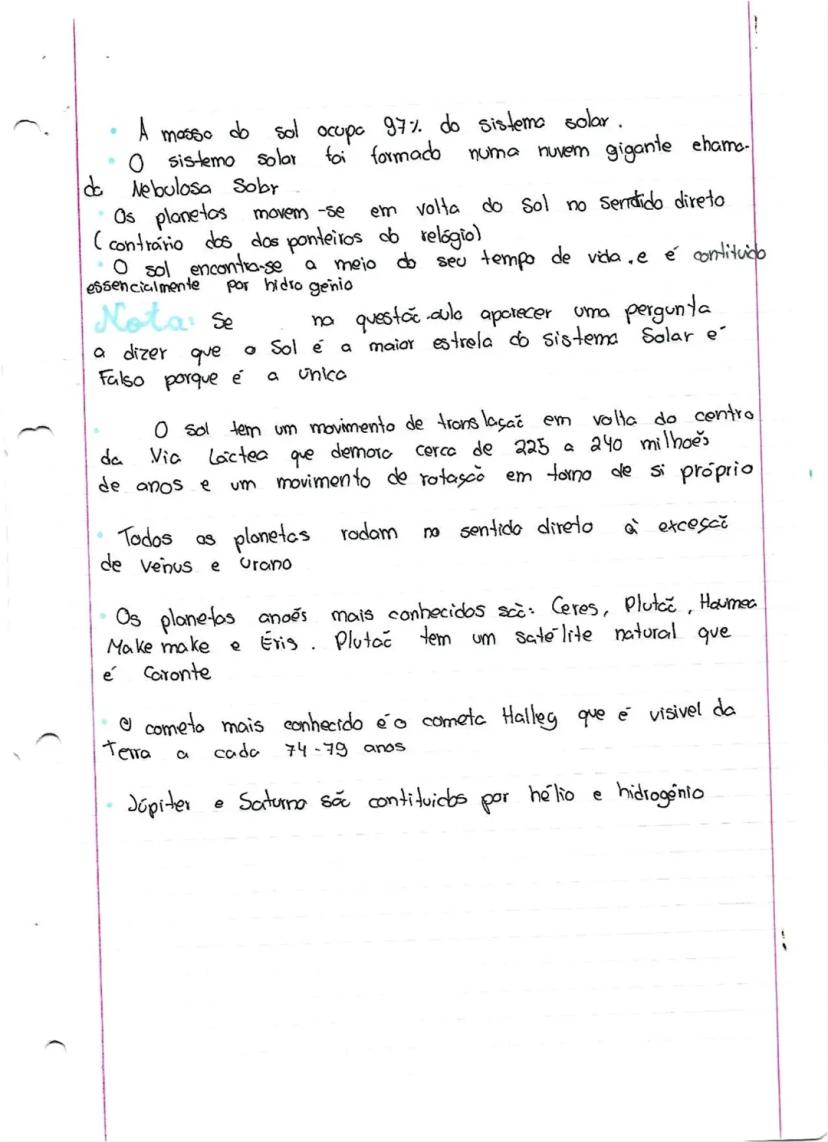 • A massa do sol ocupa 97% do sistema solar.
• O sistema solar foi formado numa nuvem gigante chama-
da Nebulosa Solar
• Os planetas movem-se em volta do Sol no sentido direto
(contrário dos dos ponteiros do relógio)
• O sol encontra-se a meio do seu tempo de vida, e é contituido
essencialmente por hidrogénio
Nota: Se na questão aula aparecer uma pergunta
a dizer que o Sol é a maior estrela do sistema Solar é
Falso porque é a única
O sol tem um movimento de translação em volta do centro
da Via Láctea que demora cerca de 225 a 240 milhões
de anos e um movimento de rotação em torno de si próprio
• Todos os planetas rodam no sentido direto à exceção
de Vénus e Urano
• Os planetas anões mais conhecidos são: Ceres, Plutão, Haumea
Make make e Éris. Plutão tem um satélite natural que
é Caronte
• O cometa mais conhecido é o cometa Halley que é visivel da
Terra a cada 74-79 anos
• Júpiter e Saturno são contituidos por hélio e hidrogénio